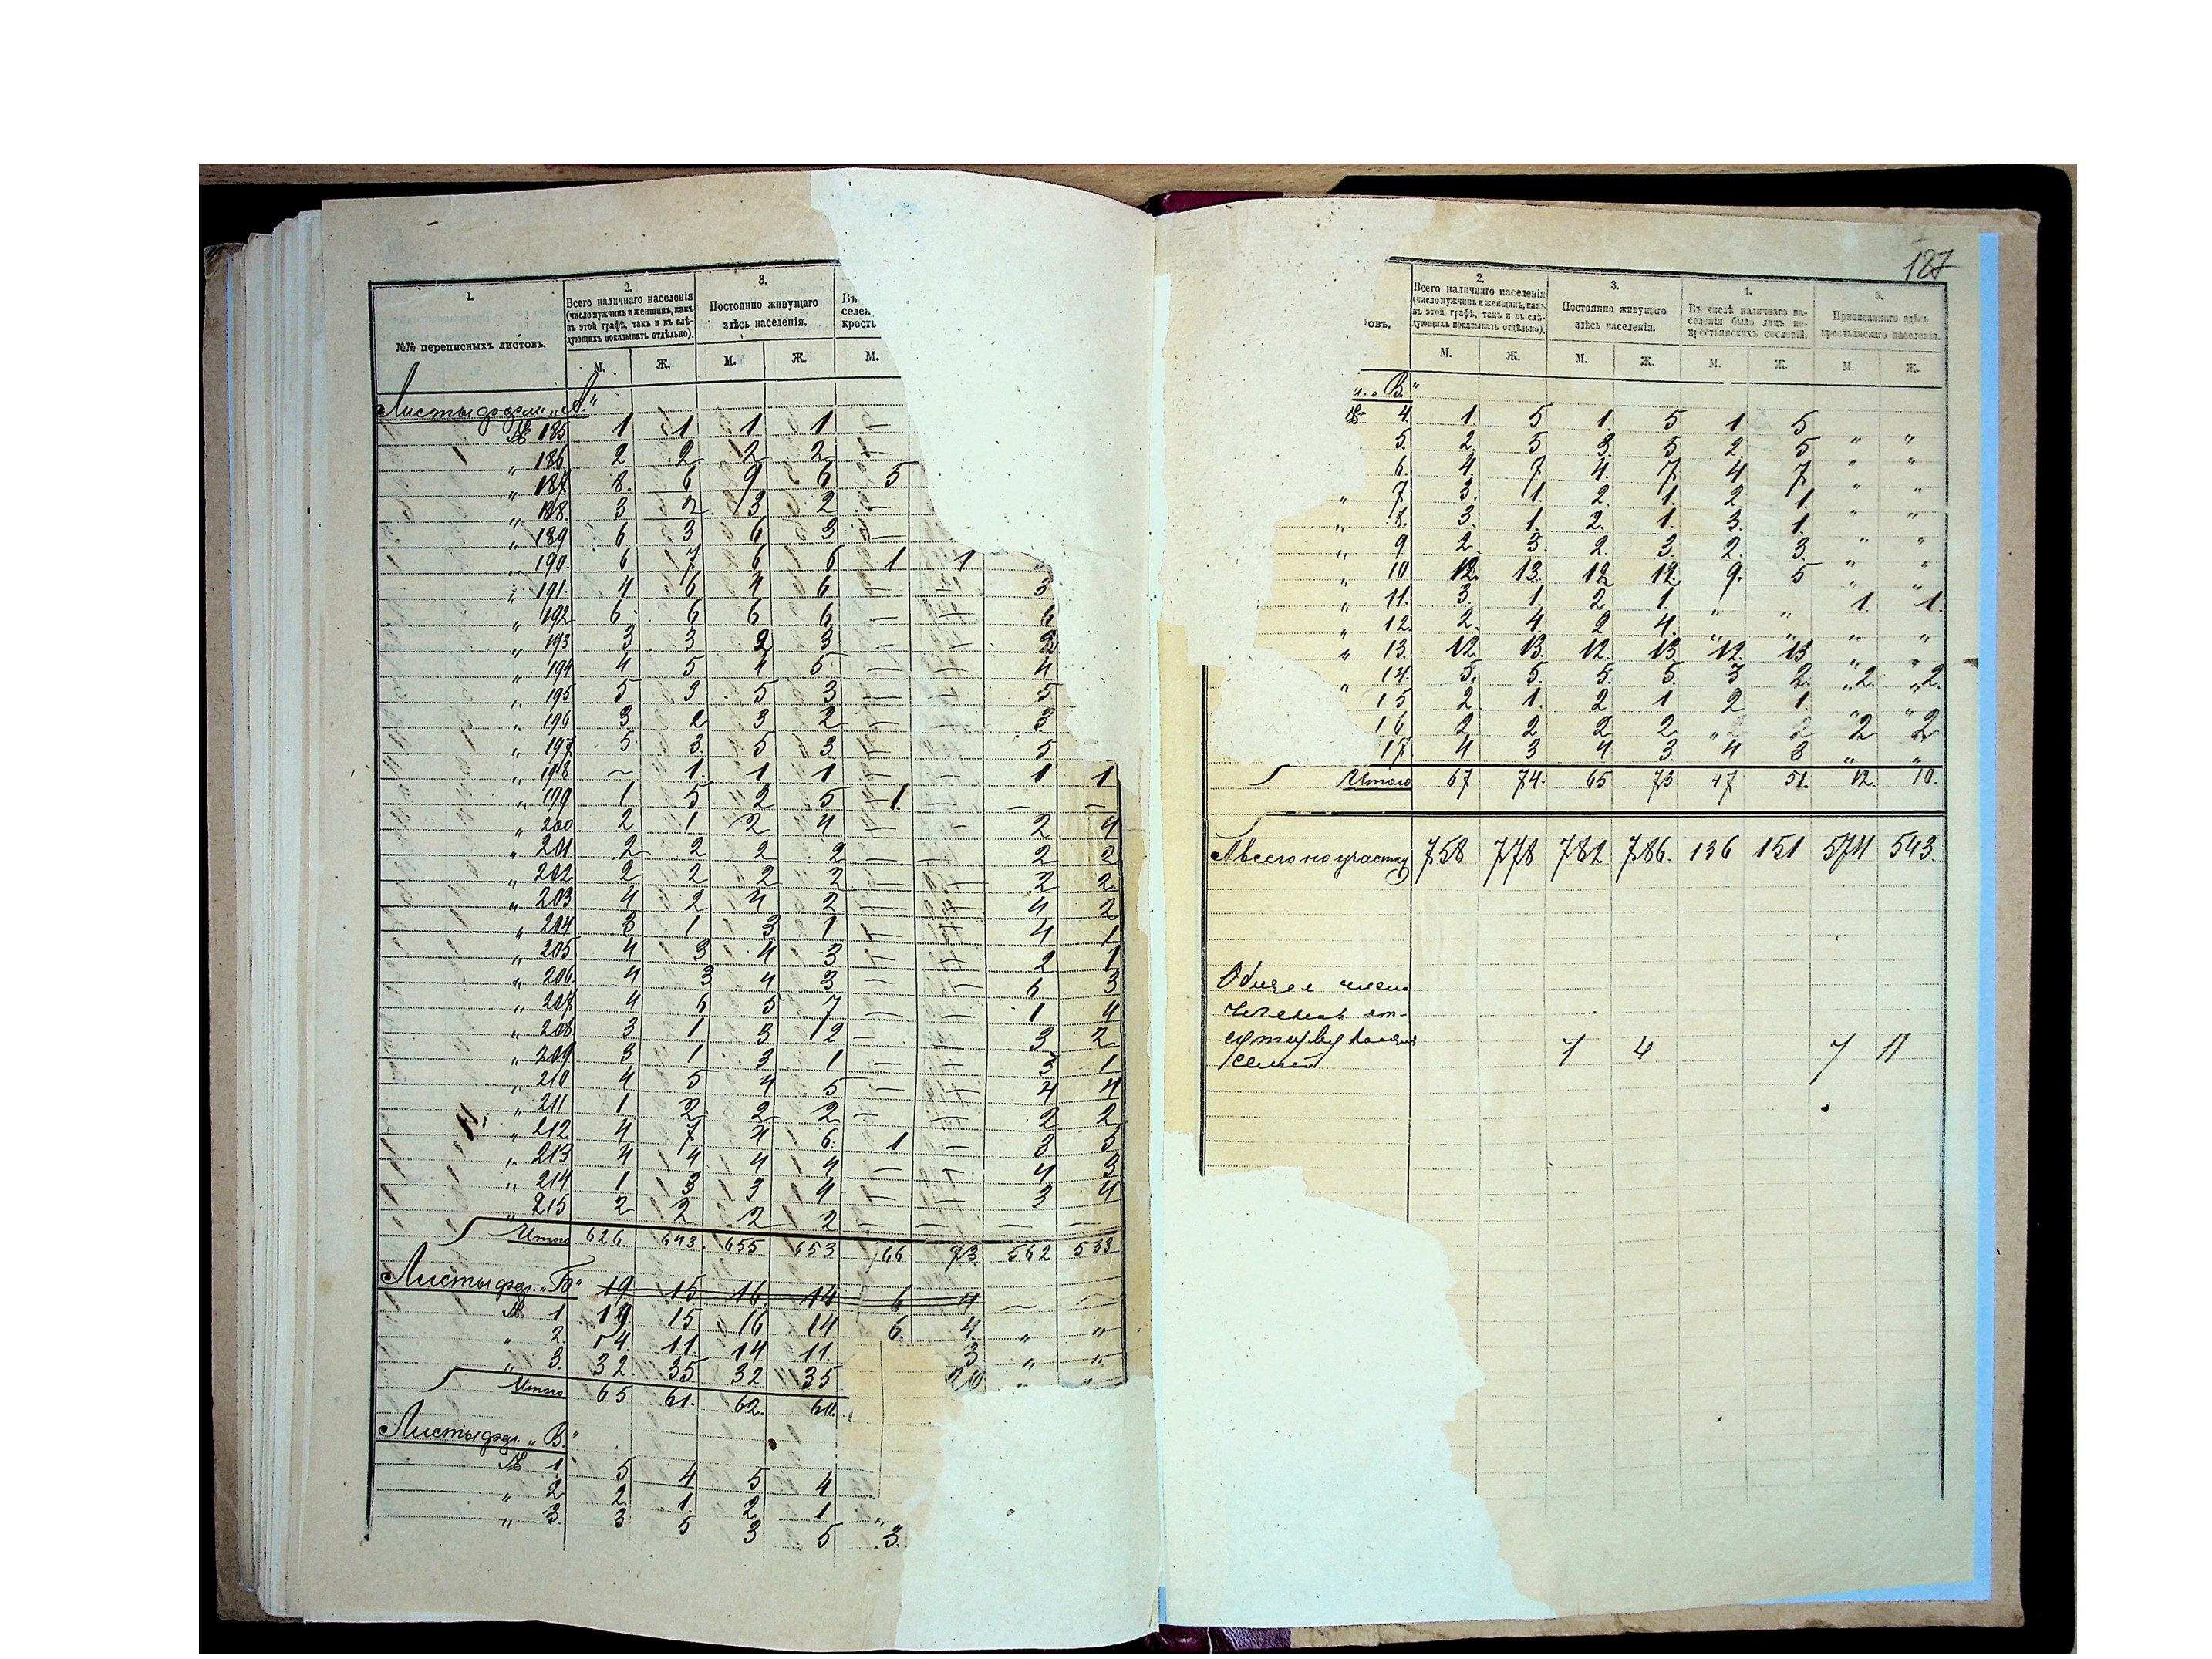 1.
№№ переписныхъ листовъ.
2.
Всего наличнаго населенія
(число мужчинъ и женщинъ, какъ
въ этой графѣ, такъ и въ слѣ-
дующихъ показывать отдѣльно).
М. Ж.
3.
Постоянно живущаго
здѣсь населенія.
М. Ж.
Въ
селен
кресть
М.
Листы форм. „А“
№ 185 1 1 1 1 —
„ 186 2 2 2 2 —
„ 187 8. 6 9 6 5
„ 188. 3 2 3 2 —
„ 189 6 3 6 3 —
„ 190. 6 7 6 6 1 1 „
„ 191. 4 6 4 6 — — 3
„ 192 6. 6 6 6 — — 6
„ 193 3 3 2 3 — — 3
„ 194 4 5 4 5 — — 4
„ 195 5 3 5 3 — — 5
„ 196 3 2 3 2 — — 3
„ 197 5 3. 5 3 — — 5
„ 198 — 1. 1 1 — — 1 1
„ 199 1 5 2 5 1 — — —
„ 200 2 1 2 4 — — 2 4
„ 201 2 2 2 2 — — 2 2
„ 202 2 2 2 2 — — 2 2
„ 203 4 2 4 2 — — 4 2
„ 204 3 1 3 1 — — 4 1
„ 205 4 3 4 3 — — 2 1
„ 206 4 3 4 3 — — 6 3
„ 207. 4 6 5 7 — — 1 4
„ 208 3 1 3 2 — — 3 2
„ 209 3 1 3 1 — — 3 1
„ 210 4 5 4 5 — — 4 4
„ 211 1 2 2 2 — — 2 2
„ 212 4 7 4 6. 1 — 3 5
„ 213 4 4 4 4 — — 4 3
„ 214 1 3 3 4 — — 3 4
„ 215 2 2 2 2 — — — —
Итого 626. 643. 655 653 66 73 562 533
Листы фор. „Б“ 19 15 16 14 6 4 — —
№ 1 19. 15 16 14 6. 4. „ „
„ 2. 14. 11 14 11 3 „ „
„ 3. 32 35 32 35 20 „ „
Итого 65 61. 62. 60.
Листы фор. „В.“
№ 1 5 4 5 4
„ 2 2 1. 2 1 „
„ 3. 3 5 3 5 3.
187
овъ.
2.
Всего наличнаго населенія
(число мужчинъ и женщинъ, какъ
въ этой графѣ, такъ и въ слѣ-
дующихъ показывать отдѣльно).
М. Ж.
3.
Постоянно живущаго
здѣсь населенія.
М. Ж.
4.
Въ числѣ наличнаго на-
селенія было лицъ не-
крестьянскихъ сословій.
М. Ж.
5.
Приписаннаго здѣсь
крестьянскаго населенія.
М. Ж.
„В.“
№ 4. 1. 5 1. 5 1 5 „ „
5. 2. 5 3. 5 2. 5 „ „
6. 4. 7 4. 7 4 7 „ „
„ 7 3. 1. 2. 1. 2 1. „ „
„ 8. 3. 1. 2. 1. 3. 1. „ „
„ 9 2. 3. 2. 3. 2. 3. „ „
„ 10 12. 13. 12 12. 9. 5 „ „
„ 11. 3. 1. 2 1. „ „ 1. 1.
„ 12. 2. 4. 2 4. „ „ „ „
„ 13. 12. 13. 12. 13. 12. 13 „ „
„ 14. 5. 5. 5. 5. 3 2. „2. „2.
15 2. 1. 2 1 2 1. „ „
16 2 2 2 2 2 2
17. 4 3 4 3. 4 3 „ „
Итого 67 74. 65 73 47 51. 12. 10.
А всего по участку 758 778 782 786. 136 151 574 543.
Общее число
членовъ от-
сутствующихъ
семей 7 4 7 11